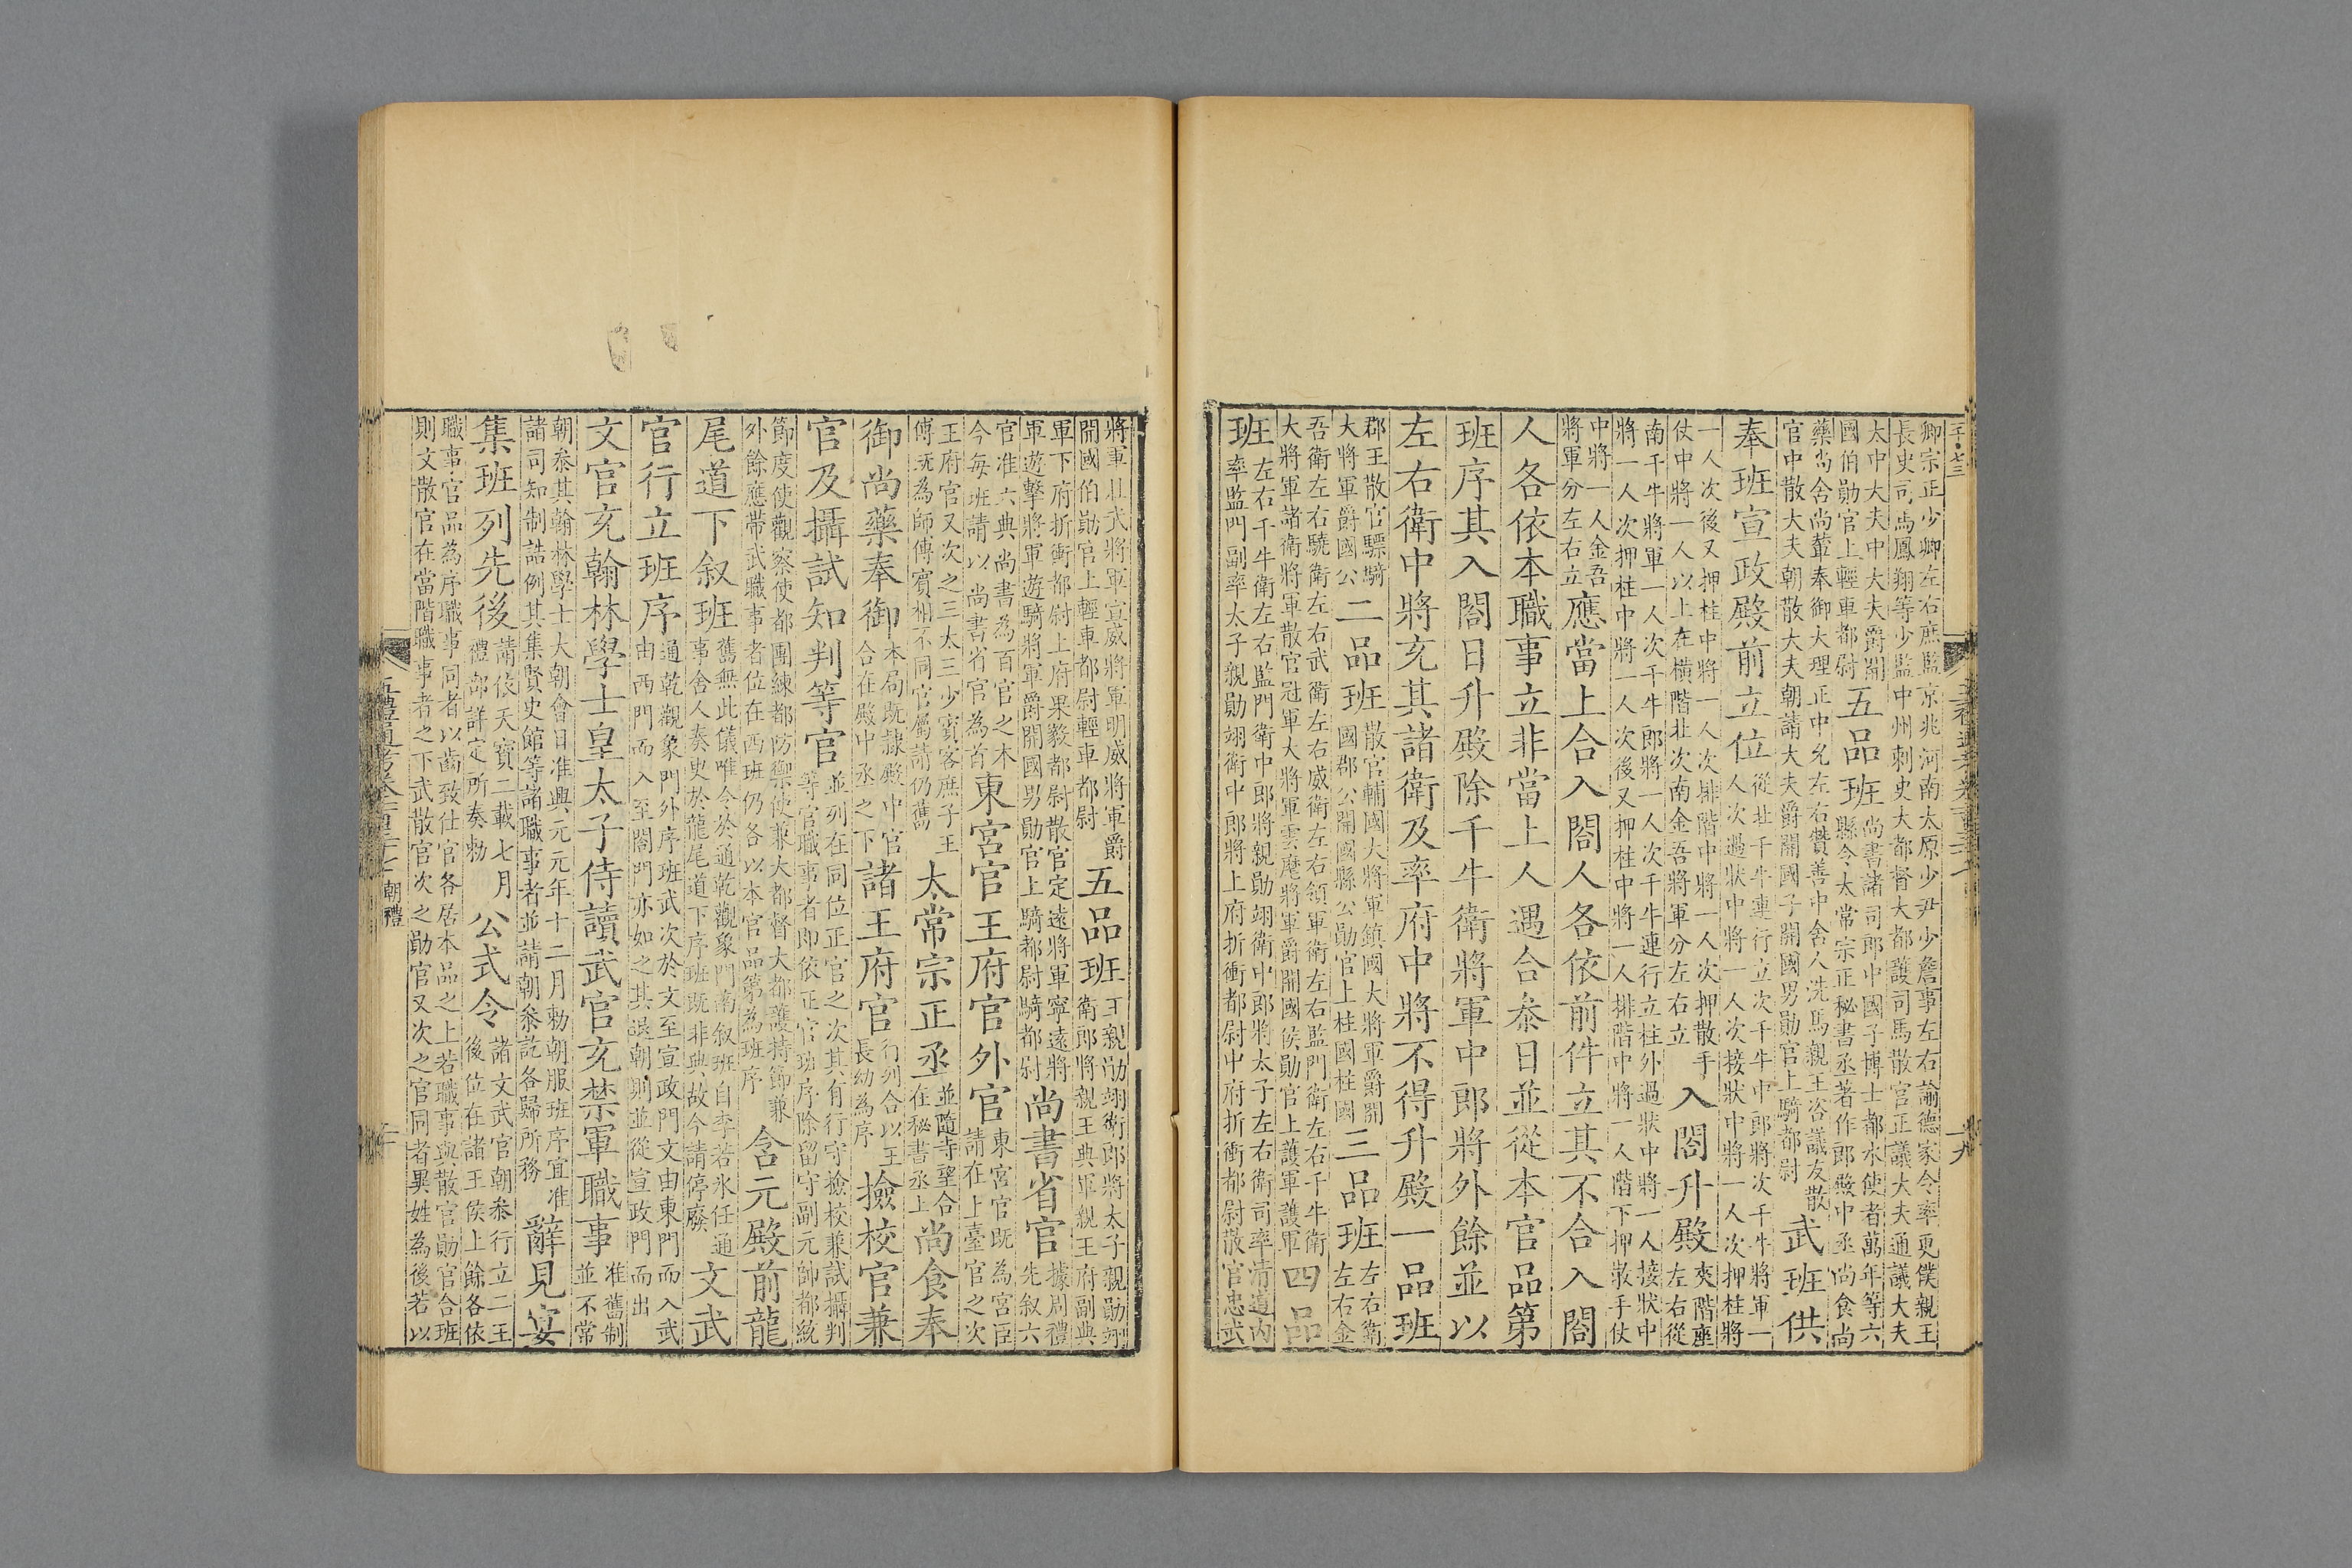 卿宗正少卿左右庶監京兆河南太原少尹少詹事左右諭德家令率更僕親王
長史司馬鳳翔等少監中州刺史大都督大都護司馬散官正議大夫通議大夫
太中大夫中大夫爵開
國伯勛官上輕車都尉
五品班
尚書諸司郎中國子博士都水使者萬年等六
縣令太常宗正秘書丞著作郎殿中丞尚食尚
藥尚舍尚輦奉御大理正中允左右贊善中舍人洗馬親王咨議友散
官中散大夫朝散大夫朝請大夫爵開國子開國男勛官上騎都尉
武班供
奉班宣政殿前立位
從北千牛連行立次千牛中郎將次千牛將軍一
人次過狀中將一人次接狀中將一人次押柱將
一人次後又押柱中將一人次排階中將一人次押散手
仗中將一人以上在橫階北次南金吾將軍分左右立
入閤升殿
夾階座
左右從
南千牛將軍一人次千牛郎將一人次千牛連行立柱外過狀中將一人接狀中
將一人次押柱中將一人次後又押柱中將一人排階中將一人階下押散手仗
中將一人金吾
將軍分左右立
應當上合入閤人各依前件立其不合入閤
人各依本職事立非當上人遇合叅日並從本官品第
班序其入閤日升殿除千牛衛將軍中郎將外餘並以
左右衛中將充其諸衛及率府中將不得升殿一品班
郡王散官驃騎
大將軍爵國公
二品班
散官輔國大將軍鎮國大將軍爵開
國郡公開國縣公勛官上柱國柱國
三品班
左右衛
左右金
吾衛左右驍衛左右武衛左右威衛左右領軍衛左右監門衛左右千牛衛
大將軍諸衛將軍散官冠軍大將軍雲麾將軍爵開國侯勛官上護軍護軍
四品
班
左右千牛衛左右監門衛中郎將親勛翊衛中郎將太子左右衛司率清道內
率監門副率太子親勛翊衛中郎將上府折衝都尉中府折衝都尉散官忠武
將軍壯武將軍宣威將軍明威將軍爵
開國伯勛官上輕車都尉輕車都尉
五品班
王親勛翊衛郎將太子親勛翊
衛郎將親王典軍親王府副典
軍下府折衝都尉上府果毅都尉散官定遠將軍寧遠將
軍遊擊將軍遊騎將軍爵開國男勛官上騎都尉騎都尉
尚書省官
據周禮
先叙六
官准六典尚書為百官之本
今每班請以尚書省官為首
東宮官王府官外官
東宮官既為宮臣
請在上臺官之次
王府官又次之三太三少賓客庶子王
傅既為師傅賓相不同官屬請仍舊
太常宗正丞
並隨寺望合
在秘書丞上
尚食奉
御尚藥奉御
本局既隸殿中官
合在殿中丞之下
諸王府官
行列合以王
長幼為序
撿校官兼
官及攝試知判等官
並列在同位正官之次其有行守撿校兼試攝判
等官職事者即依正官班序除留守副元帥都統
節度使觀察使都團練都防禦使兼大都督大都護持節兼
外餘應帶武職事者位在西班仍各以本官品第為班序
含元殿前龍
尾道下叙班
舊無此儀唯今於通乾觀象門南叙班自李若氷任通
事舍人奏吏於龍尾道下序班既非典故今請停廢
文武
官行立班序
通乾觀象門外序班武次於文至宣政門文由東門而入武
由西門而入至閤門亦如之其退朝則並從宣政門而出
文官充翰林學士皇太子侍讀武官充禁軍職事
准舊制
並不常
朝叅其翰林學士大朝會日准興元元年十二月勅朝服班序宜准
諸司知制誥例其集賢史館等諸職事者並請朝叅訖各歸所務
辭見宴
集班列先後
請依天寶二載七月
禮部詳定所奏勅
公式令
諸文武官朝叅行立二王
後位在諸王侯上餘各依
職事官品為序職事同者以齒致仕官各居本品之上若職事與散官勛官合班
則文散官在當階職事者之下武散官次之勛官又次之官同者異姓為後若以
朝禮